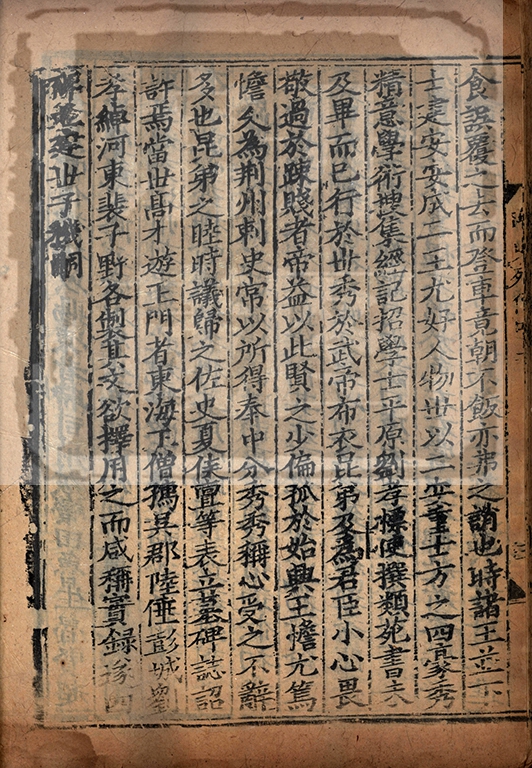 食誤覆之去而登車竟朝不飯亦弗之誚也時諸王並下
士建安安成二王尤好人物世以二安重士方之四豪秀
精意學術搜集經記招學士平原劉孝標使撰類苑書未
及畢而已行於世秀於武帝布衣昆弟及為君臣小心畏
敬過於踈賤者帝益以此賢之少偏孤於始興王憺尤篤
憺久為荆州刺史常以所得奉中分秀秀稱心受之不辭
多也昆弟之睦時議歸之佐史夏侯亶等表立墓碑誌詔
許焉當世高才遊王門者東海王僧孺吳郡陸倕彭城劉
孝綽河東裴子野各製其文欲擇用之而咸稱實録遂四
碑並建世子機嗣